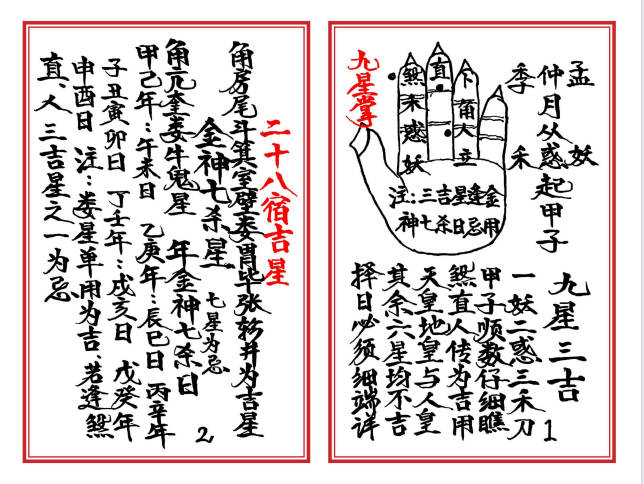 孟 妖
仲月从惑起甲子
季 禾
九星掌
卜角人立
直
煞禾惑妖
注：三吉星逢金
神七杀日忌用
九星三吉
一妖二惑三禾刀
甲子顺数仔细瞧
煞直人传为吉用
天皇地皇与人皇
其余六星均不吉
择日必须细端详
1
二十八宿吉星
角房尾斗箕室壁娄胃毕张轸井为吉星
金神七杀星 七星为忌
角亢奎娄牛鬼星 年金神七杀日
甲己年：午未日 乙庚年：辰巳日 丙辛年
子丑寅卯日 丁壬年：戌亥日 戊癸年
申酉日 注：娄星单用为吉、若逢煞
直、人三吉星之一为忌
2